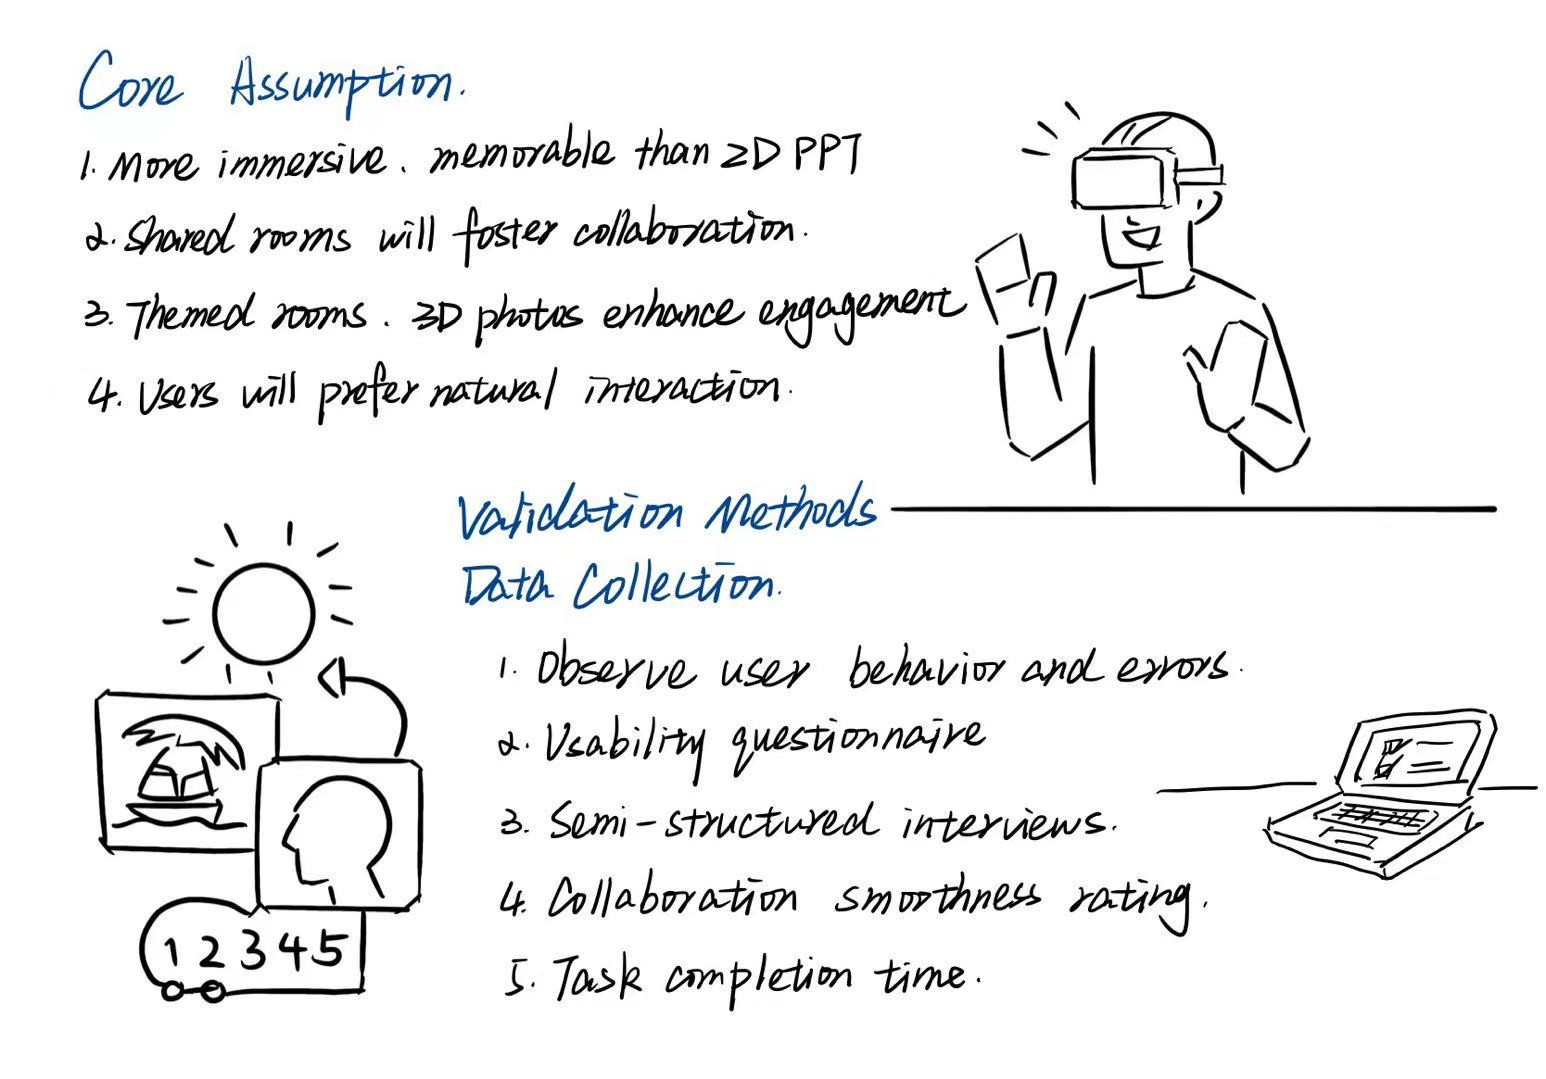 Core Assumption.
1. More immersive. memorable than 2D PPT
2. Shared rooms will foster collaboration.
3. Themed rooms. 3D photos enhance engagement
4. Users will prefer natural interaction.
Validation Methods
Data Collection.
1. Observe user behavior and errors.
2. Usability questionnaire
3. Semi-structured interviews.
4. Collaboration smoothness rating.
5. Task completion time.
1 2 3 4 5